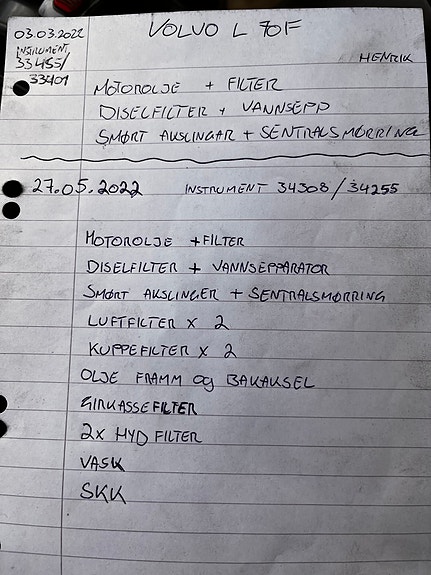 03.03.2022 VOLVO L 70F
INSTRUMENT
33455/
33401
HENRIK
MOTOROLJE + FILTER
DISELFILTER + VANNSEPP
SMØRT AKSLINGAR + SENTRALSMØRRING
27.05.2022 INSTRUMENT 34308/34255
MOTOROLJE + FILTER
DISELFILTER + VANNSEPPARATOR
SMØRT AKSLINGER + SENTRALSMØRRING
LUFTFILTER X 2
KUPPEFILTER X 2
OLJE FRAMM OG BAKAKSEL
GIRKASSEFILTER
2X HYD FILTER
VASK
SKK